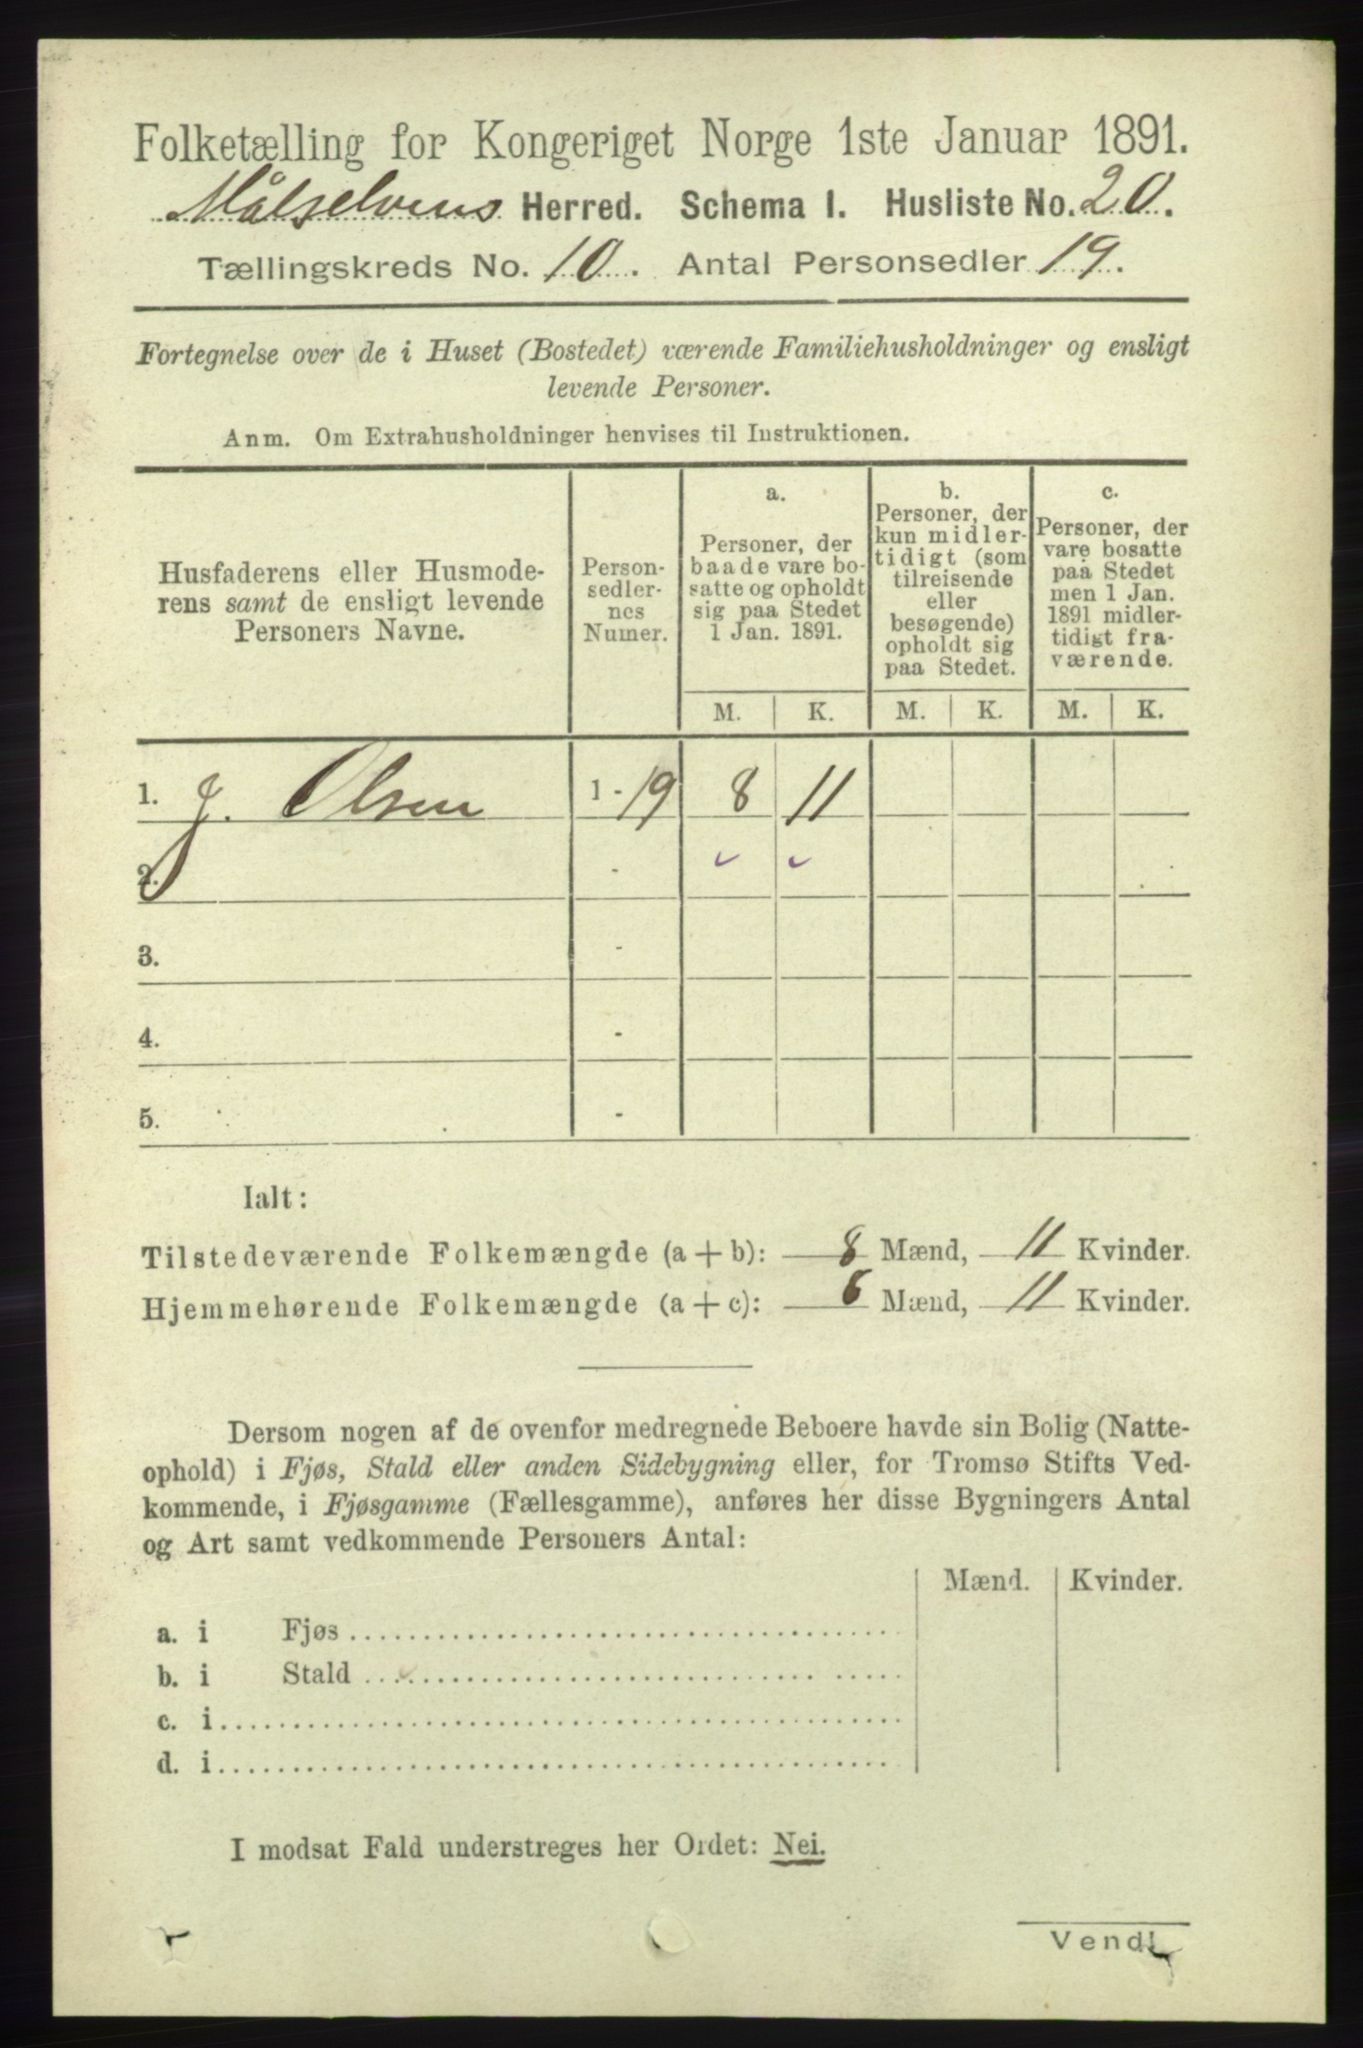 Folketælling for Kongeriget Norge 1ste Januar 1891.
Målselvens Herred. Schema I. Husliste No. 20.
Tællingskreds No. 10. Antal Personsedler 19.
Fortegnelse over de i Huset (Bostedet) værende Familiehusholdninger og ensligt
levende Personer.
Anm. Om Extrahusholdninger henvises til Instruktionen.
Husfaderens eller Husmode-
rens samt de ensligt levende
Personers Navne.
Person-
sedler-
nes
Numer.
a.
Personer, der
baade vare bo-
satte og opholdt
sig paa Stedet
1 Jan. 1891.
b.
Personer, der
kun midler-
tidigt (som
tilreisende
eller
besøgende)
opholdt sig
paa Stedet.
c.
Personer, der
vare bosatte
paa Stedet
men 1 Jan.
1891 midler-
tidigt fra-
værende.
M. K. M. K. M. K.
1. J. Olsen 1 - 19 8 11
2. -
3. -
4. -
5. -
Ialt:
Tilstedeværende Folkemængde (a + b): 8 Mænd, 11 Kvinder.
Hjemmehørende Folkemængde (a + c): 8 Mænd, 11 Kvinder.
Dersom nogen af de ovenfor medregnede Beboere havde sin Bolig (Natte-
ophold) i Fjøs, Stald eller anden Sidebygning eller, for Tromsø Stifts Ved-
kommende, i Fjøsgamme (Fællesgamme), anføres her disse Bygningers Antal
og Art samt vedkommende Personers Antal:
Mænd. Kvinder.
a. i Fjøs
b. i Stald
c. i
d. i
I modsat Fald understreges her Ordet: Nei.
Vend!